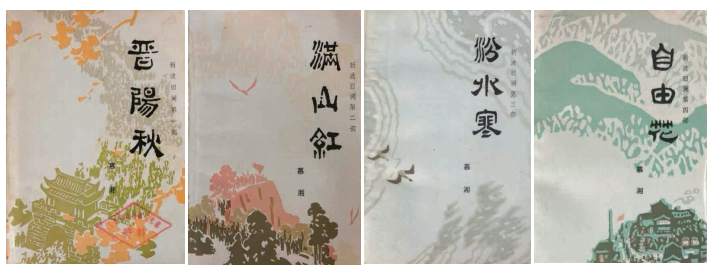 晋陽秋
新波旧澜第一部
慕湘
滿山紅
新波旧澜第二部
慕湘
汾水寒
新波旧澜第三部
慕湘
自由花
新波旧澜第四部
慕湘